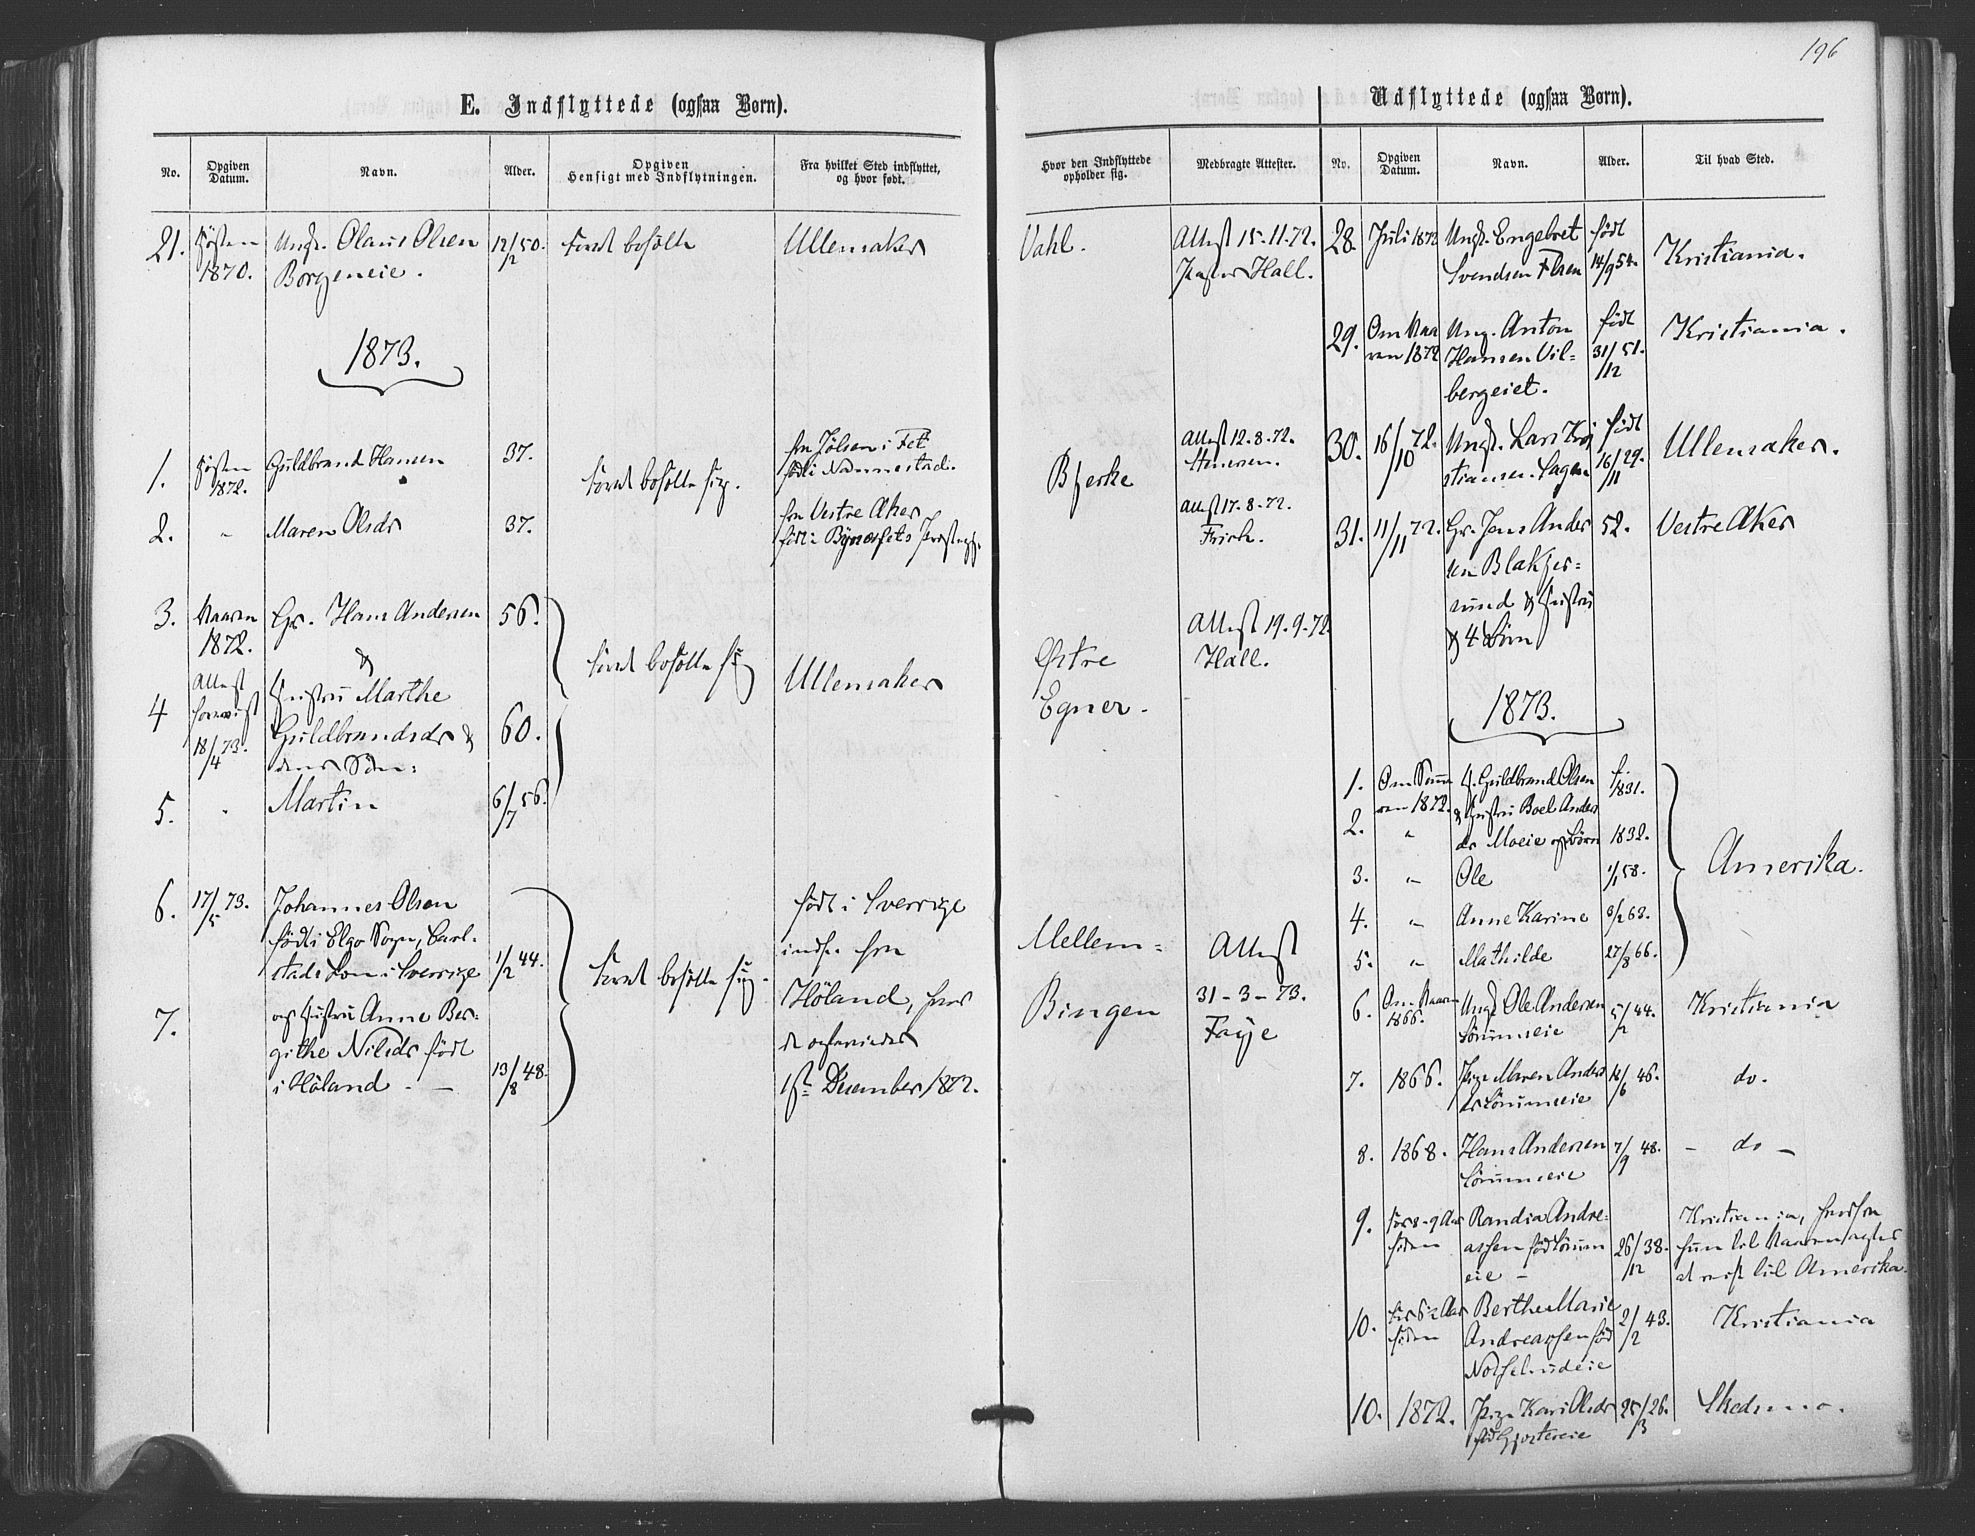 196
E. Indflyttede (ogsaa Børn).
No. Opgiven Datum. Navn. Alder. Opgiven Hensigt med Indflytningen. Fra hvilket Sted indflyttet, og hvor født.
Hvor den Indflyttede opholder sig. Medbragte Attester.
21. Høsten Ungk. Olaus Olsen 12/2 50. Ullensaker Vahl. Attest 15-11-72.
1870. Borgeneie. Hall.
1873.
1. Høsten Guldbrand Hansen 37. fra Jølsen i Fet Bjerke Attest 12-8-72.
1872. bosætte sig. født i Nannestad.
2. " Maren Olsdr 37. fra Vestre Aker Attest 17-8-72.
født i Frich.
3. Vaaren Gr. Hans Andersen 56. bosætte sig Ullensaker Østre Attest 19-9-72.
1872. & Egner. Hall.
Attest
4 Hustru Marthe
18/4 73. Guldbrandsdr & 60.
deres Søn:
5. " Martin 6/7 56.
6. 17/5 73. Johannes Olsen født i Sverrige Mellem- Attest
født i Elgo Sogn, Carl- indfl. fra Bingen 31-3-73.
stads Len i Sverrige 1/2 44. bosætte sig. Høland, hvor Faye
7. og Hustru Anne Ber-
githe Nilsdr født
i Høland - — 13/8 48. 1ste December 1872.
Udflyttede (ogsaa Børn).
No. Opgiven Datum. Navn. Alder. Til hvad Sted.
28. Juli 1872 Ungk. Engebret født Kristiania.
Svendsen 14/9 54.
29. Om Vaa Ung. Anton født Kristiania.
ren 1872 Hansen Vil= 31/12 51.
bergeiet.
30. 16/10 72. Ungk. Lars Kri født Ullensaker.
stiansen 16/11 29.
31. 11/11 72. Gr. Jens Anders 52. Vestre Aker
sen Blakjer=
rund & Hustru
& 4 Børn
1873.
1. Om Som G. Guldbrand Olsen f. 1831. Amerika.
ren 1872.
2. " & Hustru Boel Anders
dr Moeie og Børn 1832.
3. " Ole 1/1 58.
4. " Anne Karine 3/2 63.
5. " Mathilde 27/8 66.
6. Om Vaaren Ungk Ole Andersen 5/2 44. Kristiania
1866. Sørumseie
7. 1866. Pige Maren Anders 14/6 46. do.
dr Sørumseie
8. 1868. Hans Andersen 7/9 48. - do -
Sørumseie
9. for 8-9 Aar Randia Andre= Kristiania, hvorfra
siden assen født Sørum 26/12 38. hun til Vaaren agter
eie - at reise til Amerika.
10. for Aar Berthe Marie 2/2 43. Kristiania
siden Andreassen født
10. 1872. Pige Kari Olsdr 25/3 26. Skedsmo.